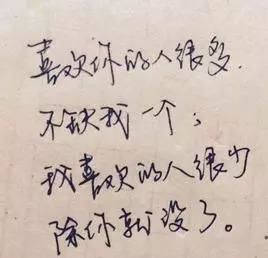 喜欢你的人很多.
不缺我一个;
我喜欢的人很少
除你就没了。